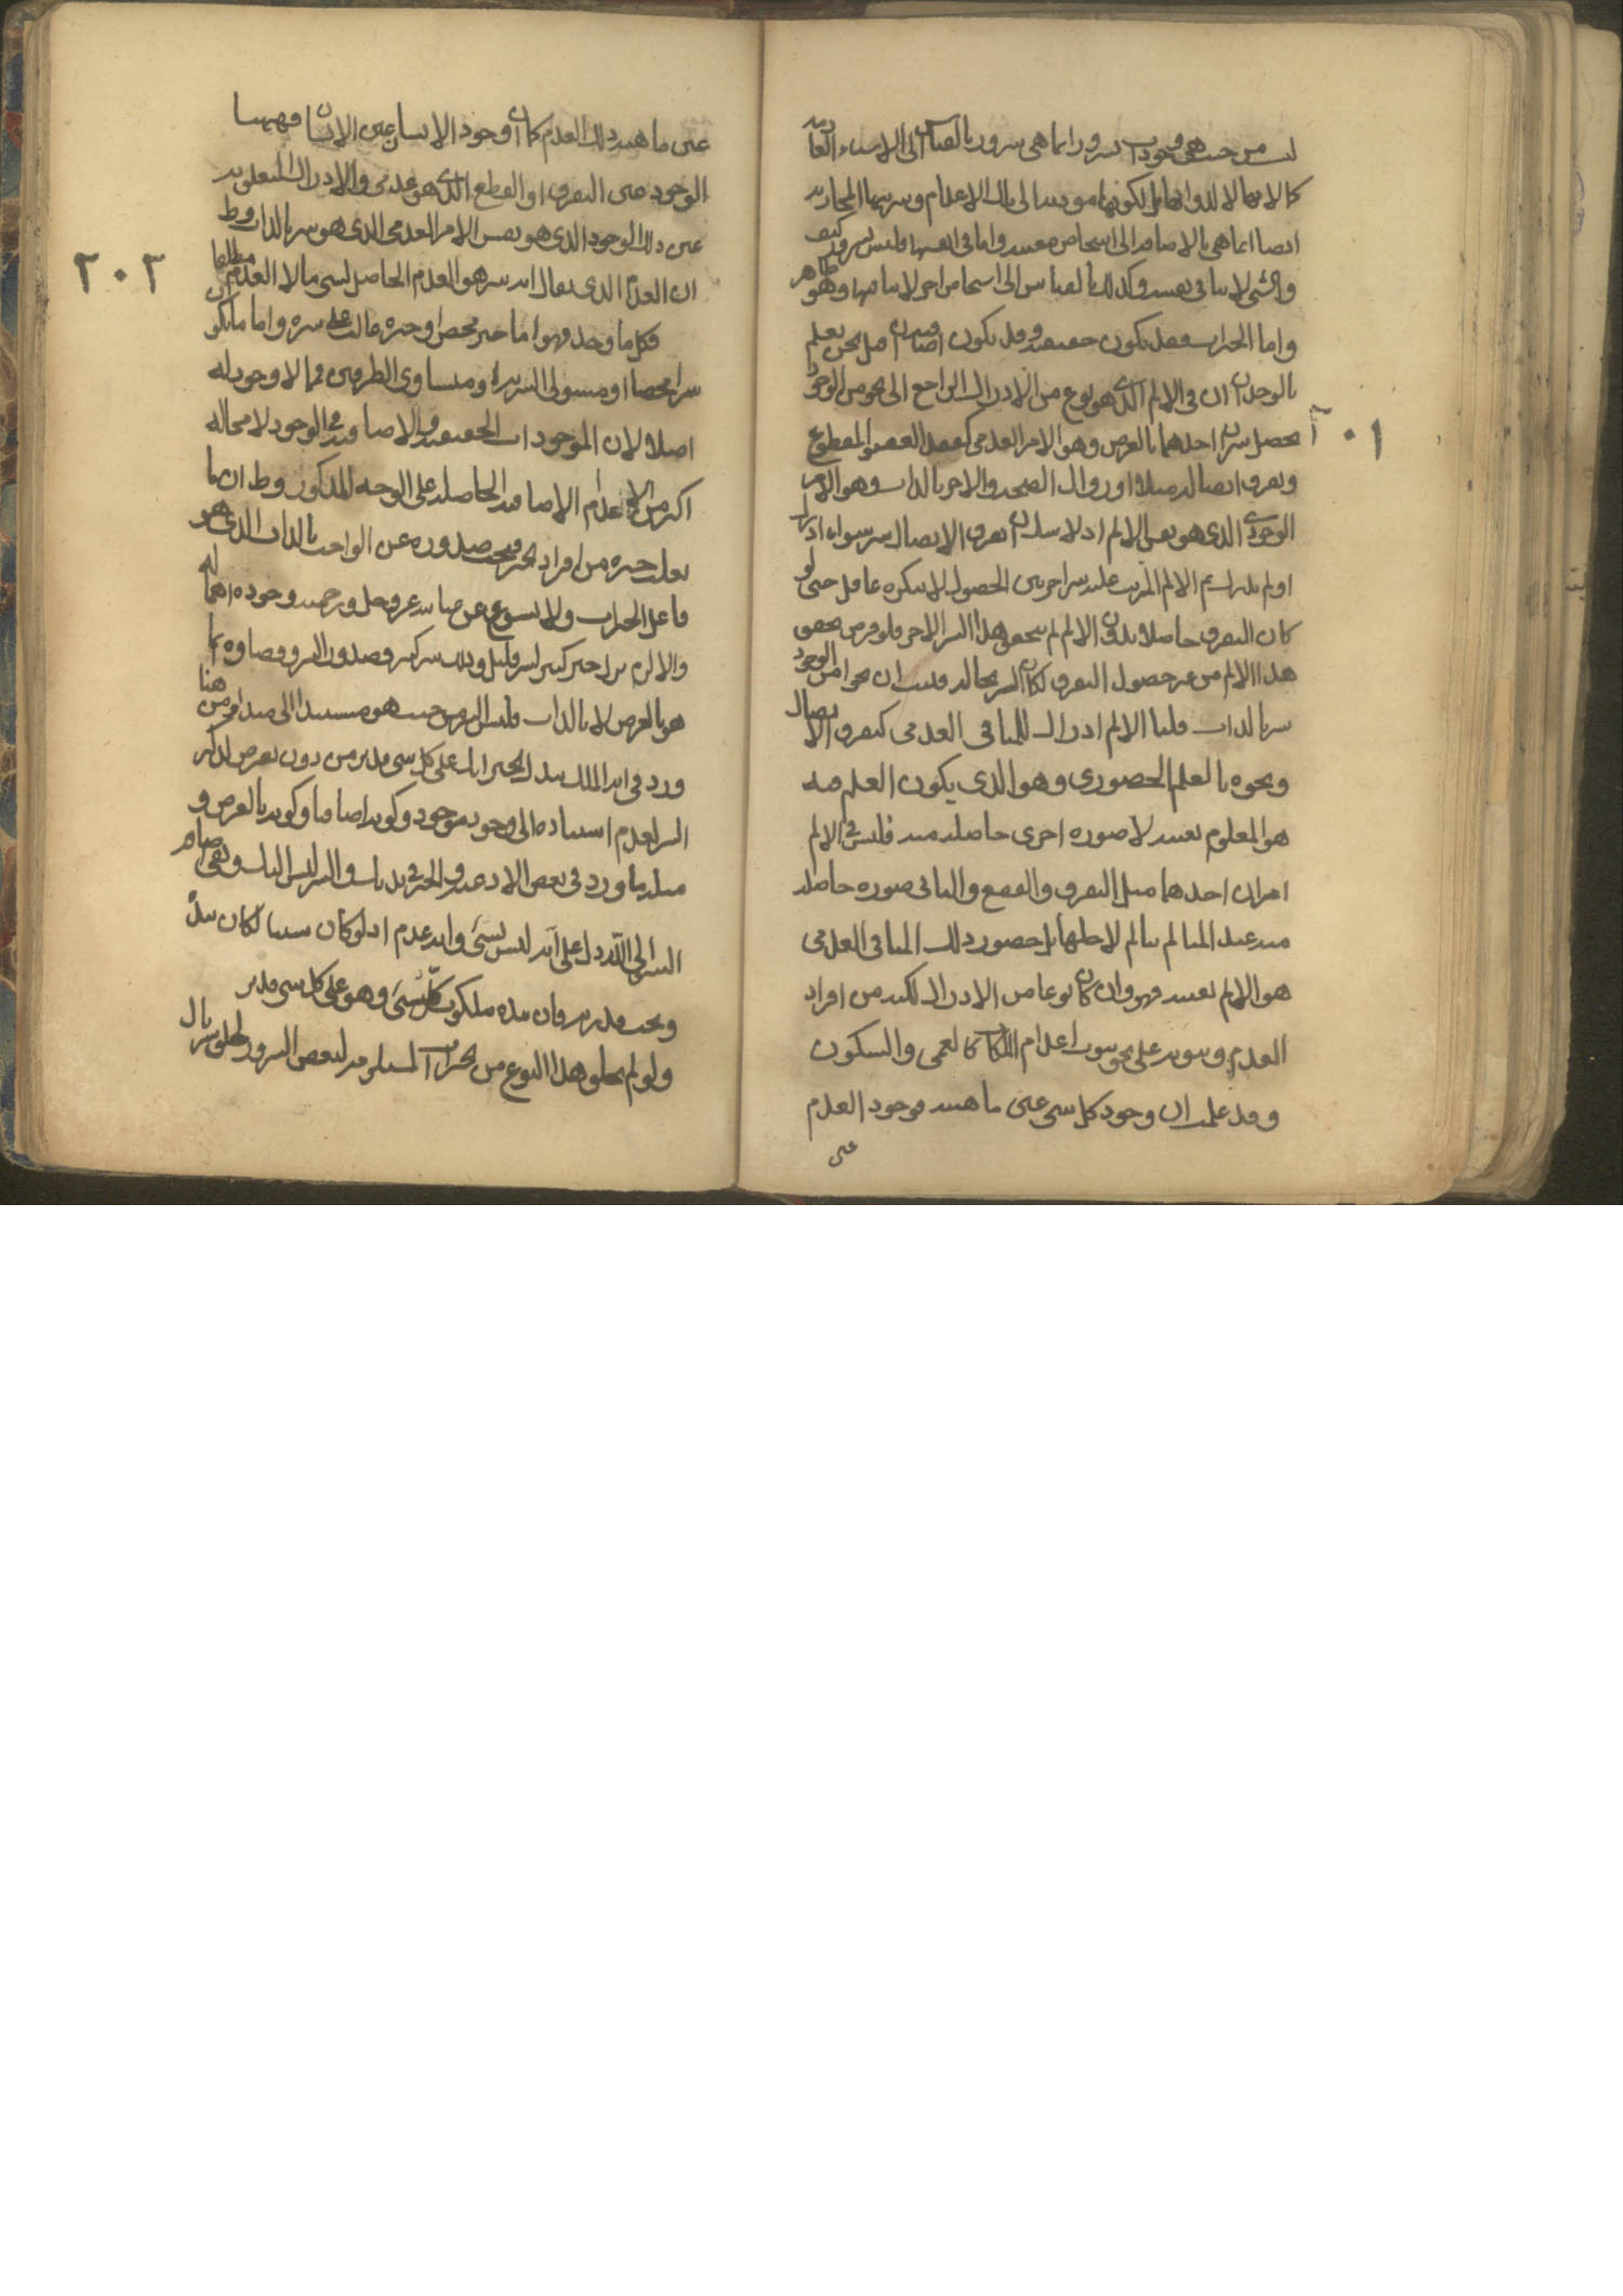 ليست من حيث هي وجودات بشرور انما هي شرور بالقياس الى الاشياء العادمة
كمالاتها لا لذواتها بل لكونها مؤدية الى تلك الاعدام وشريتها المجازية
ايضا انما هي بالاضافة الى اشخاص معينة واما في انفسها فليس بشرور كيف
والشئ لا ينافي نفسه وكذلك بالقياس الى اشخاص اخر لا منافيها وهو ظاهر
واما الخيرات فقد تكون حقيقية وقد تكون اضافية فان قيل نحن نعلم
بالوجدان ان في الالم الذي هو نوع من الادراك الراجع الى نحو من الوجود
يحصل شران احدهما بالعرض وهو الامر العدمي كفقد العضو المقطوع
وتفرق اتصاله مثلا او زوال الصحة والاخر بالذات وهو الامر
الوجودي الذي هو نفس الالم اذ لا شك ان تفرق الاتصال شر سواء ادرك
او لم يدرك ثم الالم المترتب عليه شر اخر بين الحصول لا ينكره عاقل حتى لو
كان التفرق حاصلا بدون الالم لم يتحقق هذا الشر الاخر ولو فرض تحقق
هذا الالم من غير حصول التفرق لكان الشر بحاله فثبت ان نحوا من الوجود
شر بالذات قلنا الالم ادراك للمنافي العدمي كتفرق الاتصال
ونحوه بالعلم الحضوري وهو الذي يكون العلم فيه
هو المعلوم بعينه لا صورة اخرى حاصلة منه فليس في الالم
امران احدهما مثل التفرق والقطع والثاني صورة حاصلة
منه عند المتالم يتالم لاجلها بل حضور ذلك المنافي العدمي
هو الالم بعينه فهو وان كان نوعا من الادراك لكنه من افراد
العدم وثبوته على نحو ثبوت اعدام الملكات كالعمى والسكون
وقد علمت ان وجود كل شئ عين ماهيته فوجود العدم
عين
٢٠١
عين ماهية ذلك العدم كما ان وجود الانسان عين الانسان فههنا
الوجود عين التفرق او القطع الذي هو عدمي والادراك المتعلق به
عين ذلك الوجود الذي هو نفس الامر العدمي الذي هو شر بالذات وظهر
ان العدم الذي يقال انه شر هو العدم الحاصل لشئ ما لا العدم مطلقا
فكل ما وجد فهو اما خير محض او خيره غالب على شره واما ما يكون
شرا محضا او مستولى الشرية او متساوي الطرفين فما لا وجود له
اصلا لان الموجودات الحقيقية والاضافية في الوجود لا محالة
اكثر من الاعدام الاضافية الحاصلة على الوجه المذكور وظهر ان ما
يغلب خيره من افراد الخير فيجب صدوره عن الواجب بالذات الذي هو
فاعل الخيرات ولا يسوغ عن عنايته عز وجل ورحمته وجوده اهماله
والا لزم ترك خير كثير لشر قليل وذلك شر كثير فصدور الشر وقضاؤه انما
هو بالعرض لا بالذات فليس الشر من حيث هو مستندا الى مبدا فمن هنا
ورد في اية الملك بيدك الخير انك على كل شئ قدير من دون تعرض لذكر
الشر لعدم استناده الى وجود موجود وكونه اضافيا وكونه بالعرض و
مثله ما ورد في بعض الادعية والخير في يديك والشر ليس اليك ونفي انضمام
الشر الى الله دل على انه ليس بشئ وانه عدم اذ لو كان شيئا لكان بيده
وتحت قدرته فان بيده ملكوت كل شئ وهو على كل شئ قدير
ولو لم يخلق هذا النوع من الخيرات المستلزمة لبعض الشرور لخلو سربال
٢٠٢